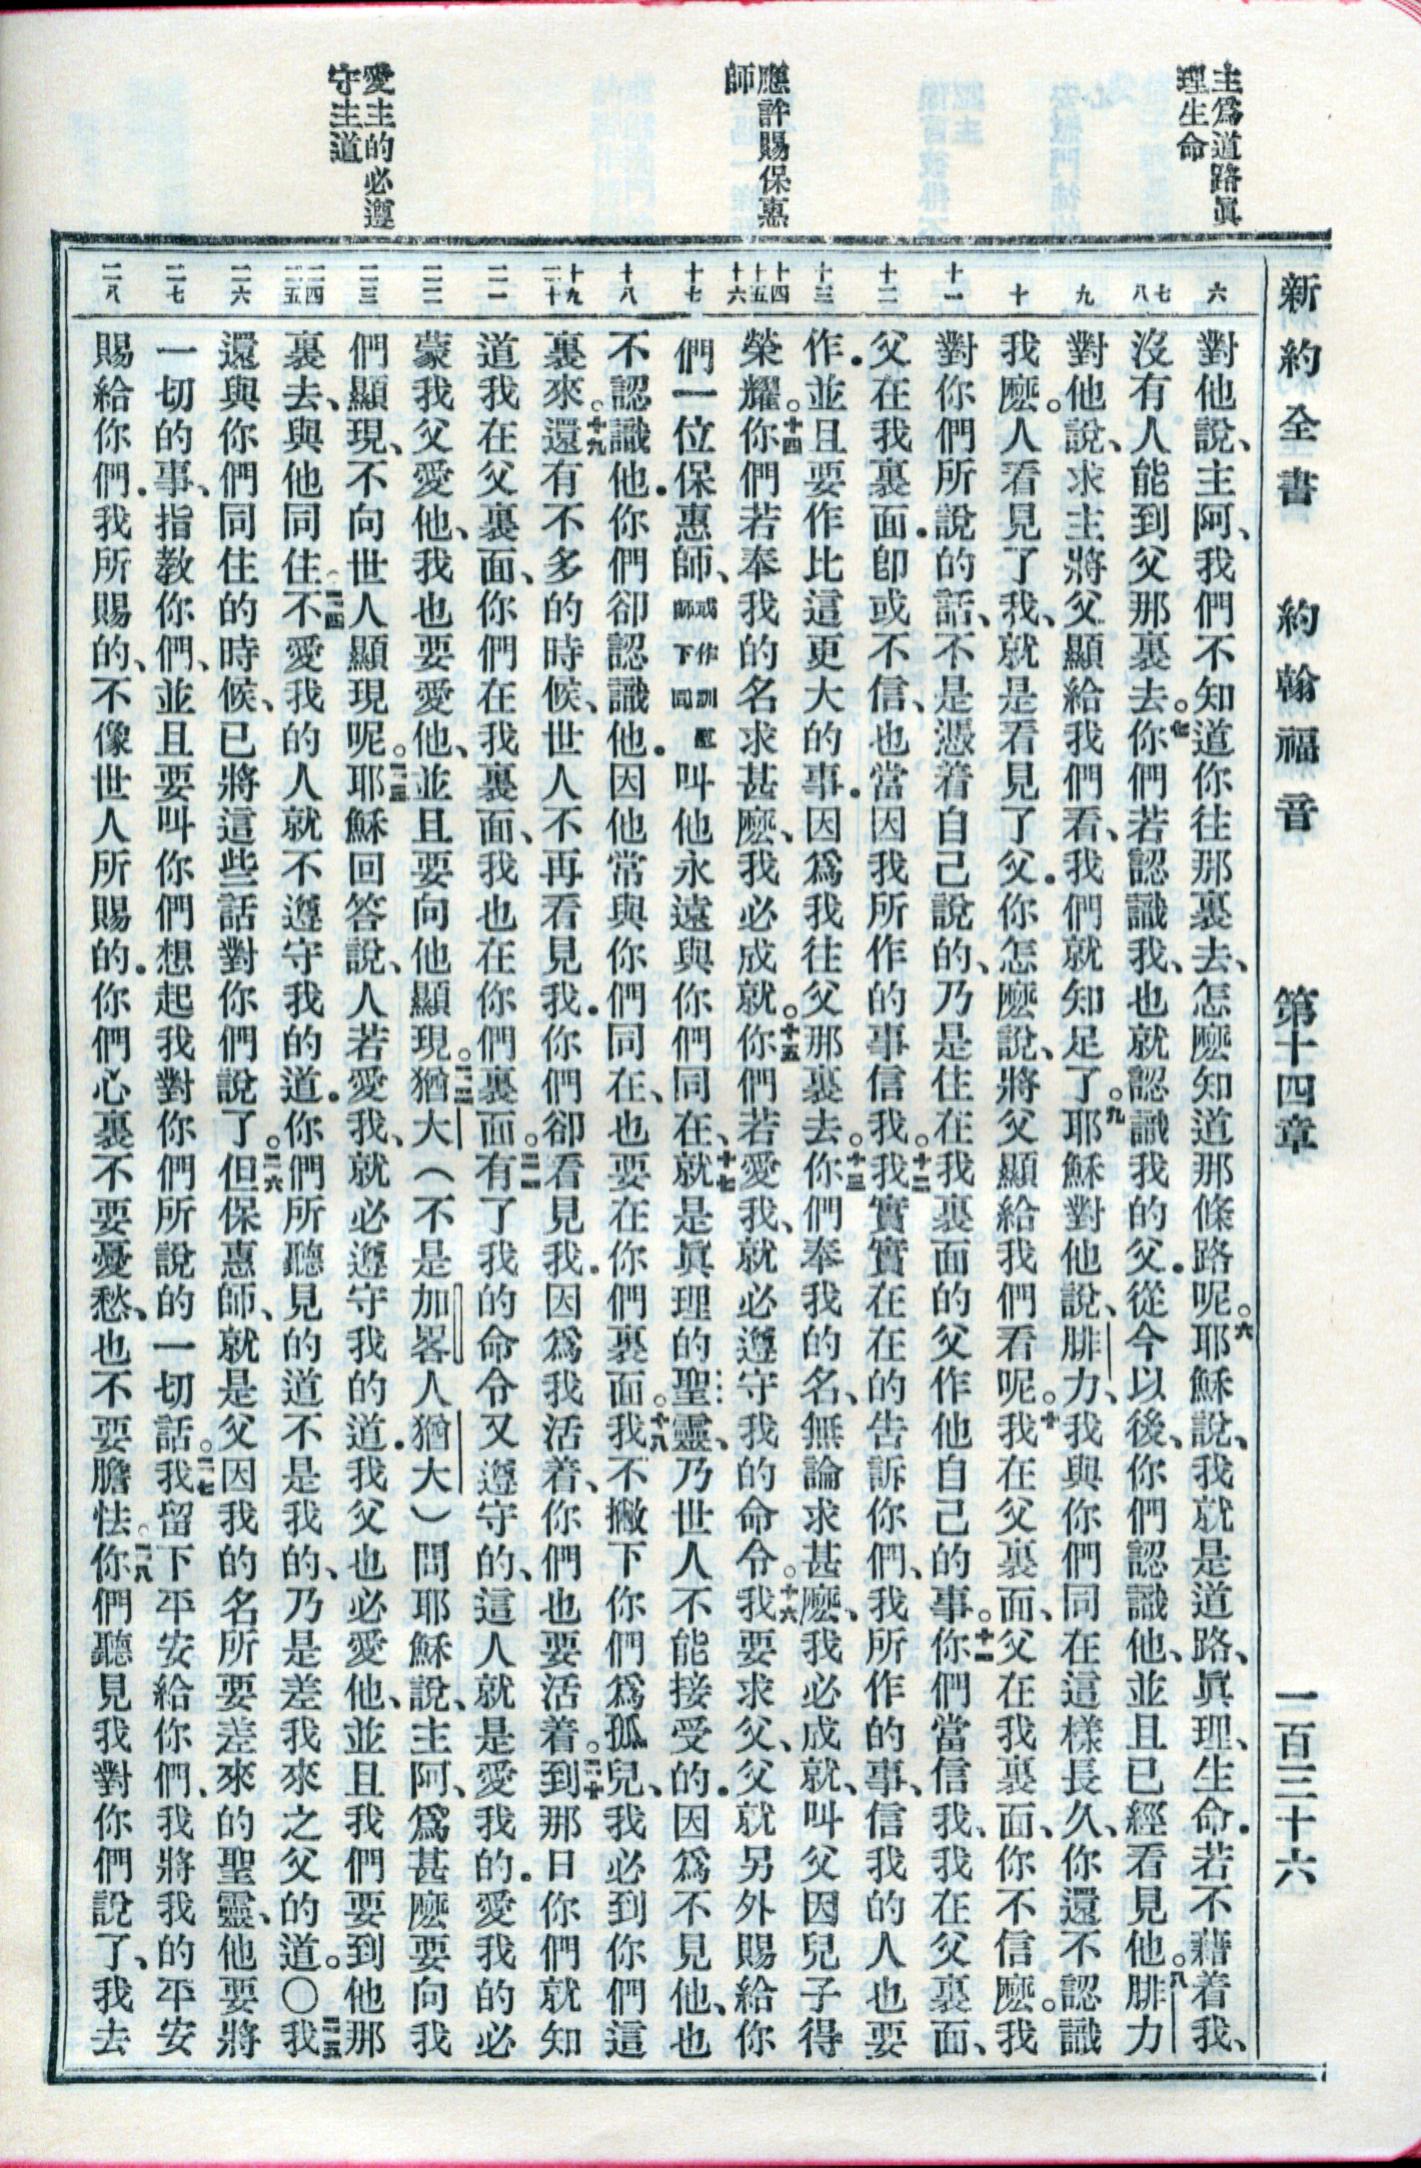 新約全書　約翰福音　第十四章　一百三十六
主爲道路眞
理生命
應許賜保惠
師
愛主的必遵
守主道
六
七
八
九
十
十一
十二
十三
十四
十五
十六
十七
十八
十九
二十
二一
二二
二三
二四
二五
二六
二七
二八
對他說、主阿、我們不知道你往那裏去、怎麽知道那條路呢。六耶穌說、我就是道路、眞理、生命．若不藉着我、
沒有人能到父那裏去。七你們若認識我、也就認識我的父．從今以後、你們認識他、並且已經看見他。八腓力
對他說、求主將父顯給我們看、我們就知足了。九耶穌對他說、腓力、我與你們同在這樣長久、你還不認識
我麽。人看見了我、就是看見了父．你怎麽說、將父顯給我們看呢。十我在父裏面、父在我裏面、你不信麽。我
對你們所說的話、不是憑着自己說的、乃是住在我裏面的父作他自己的事。十一你們當信我、我在父裏面、
父在我裏面．卽或不信、也當因我所作的事信我。十二我實實在在的告訴你們、我所作的事、信我的人也要
作．並且要作比這更大的事．因爲我往父那裏去。十三你們奉我的名、無論求甚麽、我必成就、叫父因兒子得
榮耀。十四你們若奉我的名求甚麽、我必成就。十五你們若愛我、就必遵守我的命令。十六我要求父、父就另外賜給你
們一位保惠師、或作訓慰師下同叫他永遠與你們同在、十七就是眞理的聖靈、乃世人不能接受的．因爲不見他、也
不認識他．你們卻認識他．因他常與你們同在、也要在你們裏面。十八我不撇下你們爲孤兒、我必到你們這
裏來。十九還有不多的時候、世人不再看見我．你們卻看見我．因爲我活着、你們也要活着。二十到那日你們就知
道我在父裏面、你們在我裏面、我也在你們裏面。二一有了我的命令又遵守的、這人就是愛我的．愛我的必
蒙我父愛他、我也要愛他、並且要向他顯現。二二猶大（不是加畧人猶大）問耶穌說、主阿、爲甚麽要向我
們顯現、不向世人顯現呢。二三耶穌回答說、人若愛我、就必遵守我的道．我父也必愛他、並且我們要到他那
裏去、與他同住。二四不愛我的人就不遵守我的道．你們所聽見的道不是我的、乃是差我來之父的道。〇二五我
還與你們同住的時候、已將這些話對你們說了。二六但保惠師、就是父因我的名所要差來的聖靈、他要將
一切的事、指敎你們、並且要叫你們想起我對你們所說的一切話。二七我留下平安給你們、我將我的平安
賜給你們．我所賜的、不像世人所賜的．你們心裏不要憂愁、也不要膽怯。二八你們聽見我對你們說了、我去